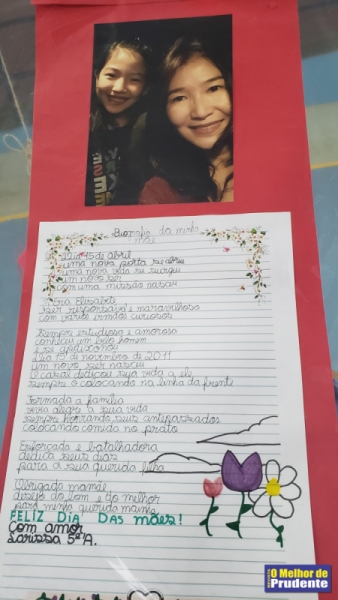 Biografia da minha
mãe
Dia 15 de abril
uma nova porta se abriu
uma nova vida se surgiu
um novo ser
com uma missão nasceu
Era Elisabete
ser responsável e maravilhoso
com vários irmãos curiosos
Sempre estudiosa e amorosa
conheceu um belo homem
e se apaixonou
Dia 13 de novembro de 2011
um novo ser nasceu
O casal dedicou sua vida a ele
sempre o colocando na linha da frente
Formada a família
vivia alegre a sua vida
sempre honrando seus antepassados
colocando comida no prato
Esforçada e batalhadora
dedica seus dias
para a sua querida filha
Obrigado mamãe
desejo do bom e do melhor
para minha querida mamãe
FELIZ DIA DAS mães!
Com amor
Larissa 5º A.
O Melhor de
Prudente